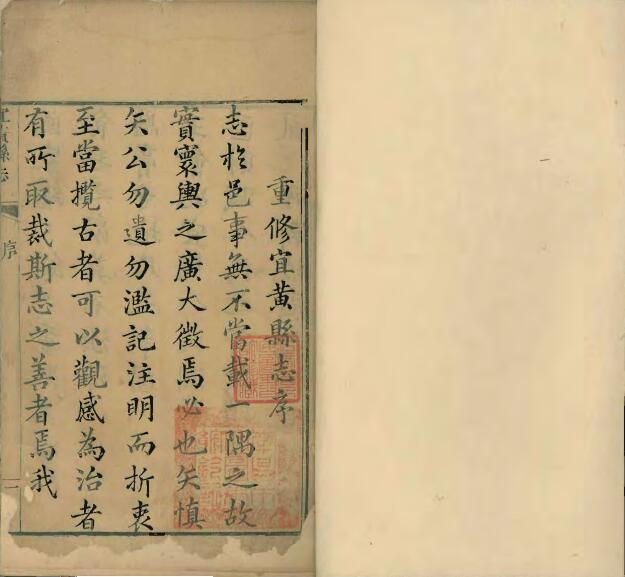 重修宜黄縣志序
志於邑事無不當載一隅之故
實寰輿之廣大徵焉必也矢慎
矢公勿遺勿濫記注明而折衷
至當攬古者可以觀感為治者
有所取裁斯志之善者焉我
宜黄縣志
序
一